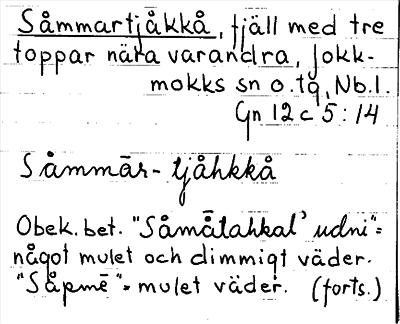 Såmmartjåkkå, fjäll med tre
toppar nära varandra, Jokk-
mokks sn o. tg, Nb.l.
Gn 12 c 5:14
Såmmār-tjåhkkå
Obek. bet. "Såmātahkal' udni"=
något mulet och dimmigt väder.
"Såpmē"= mulet väder. (forts.)